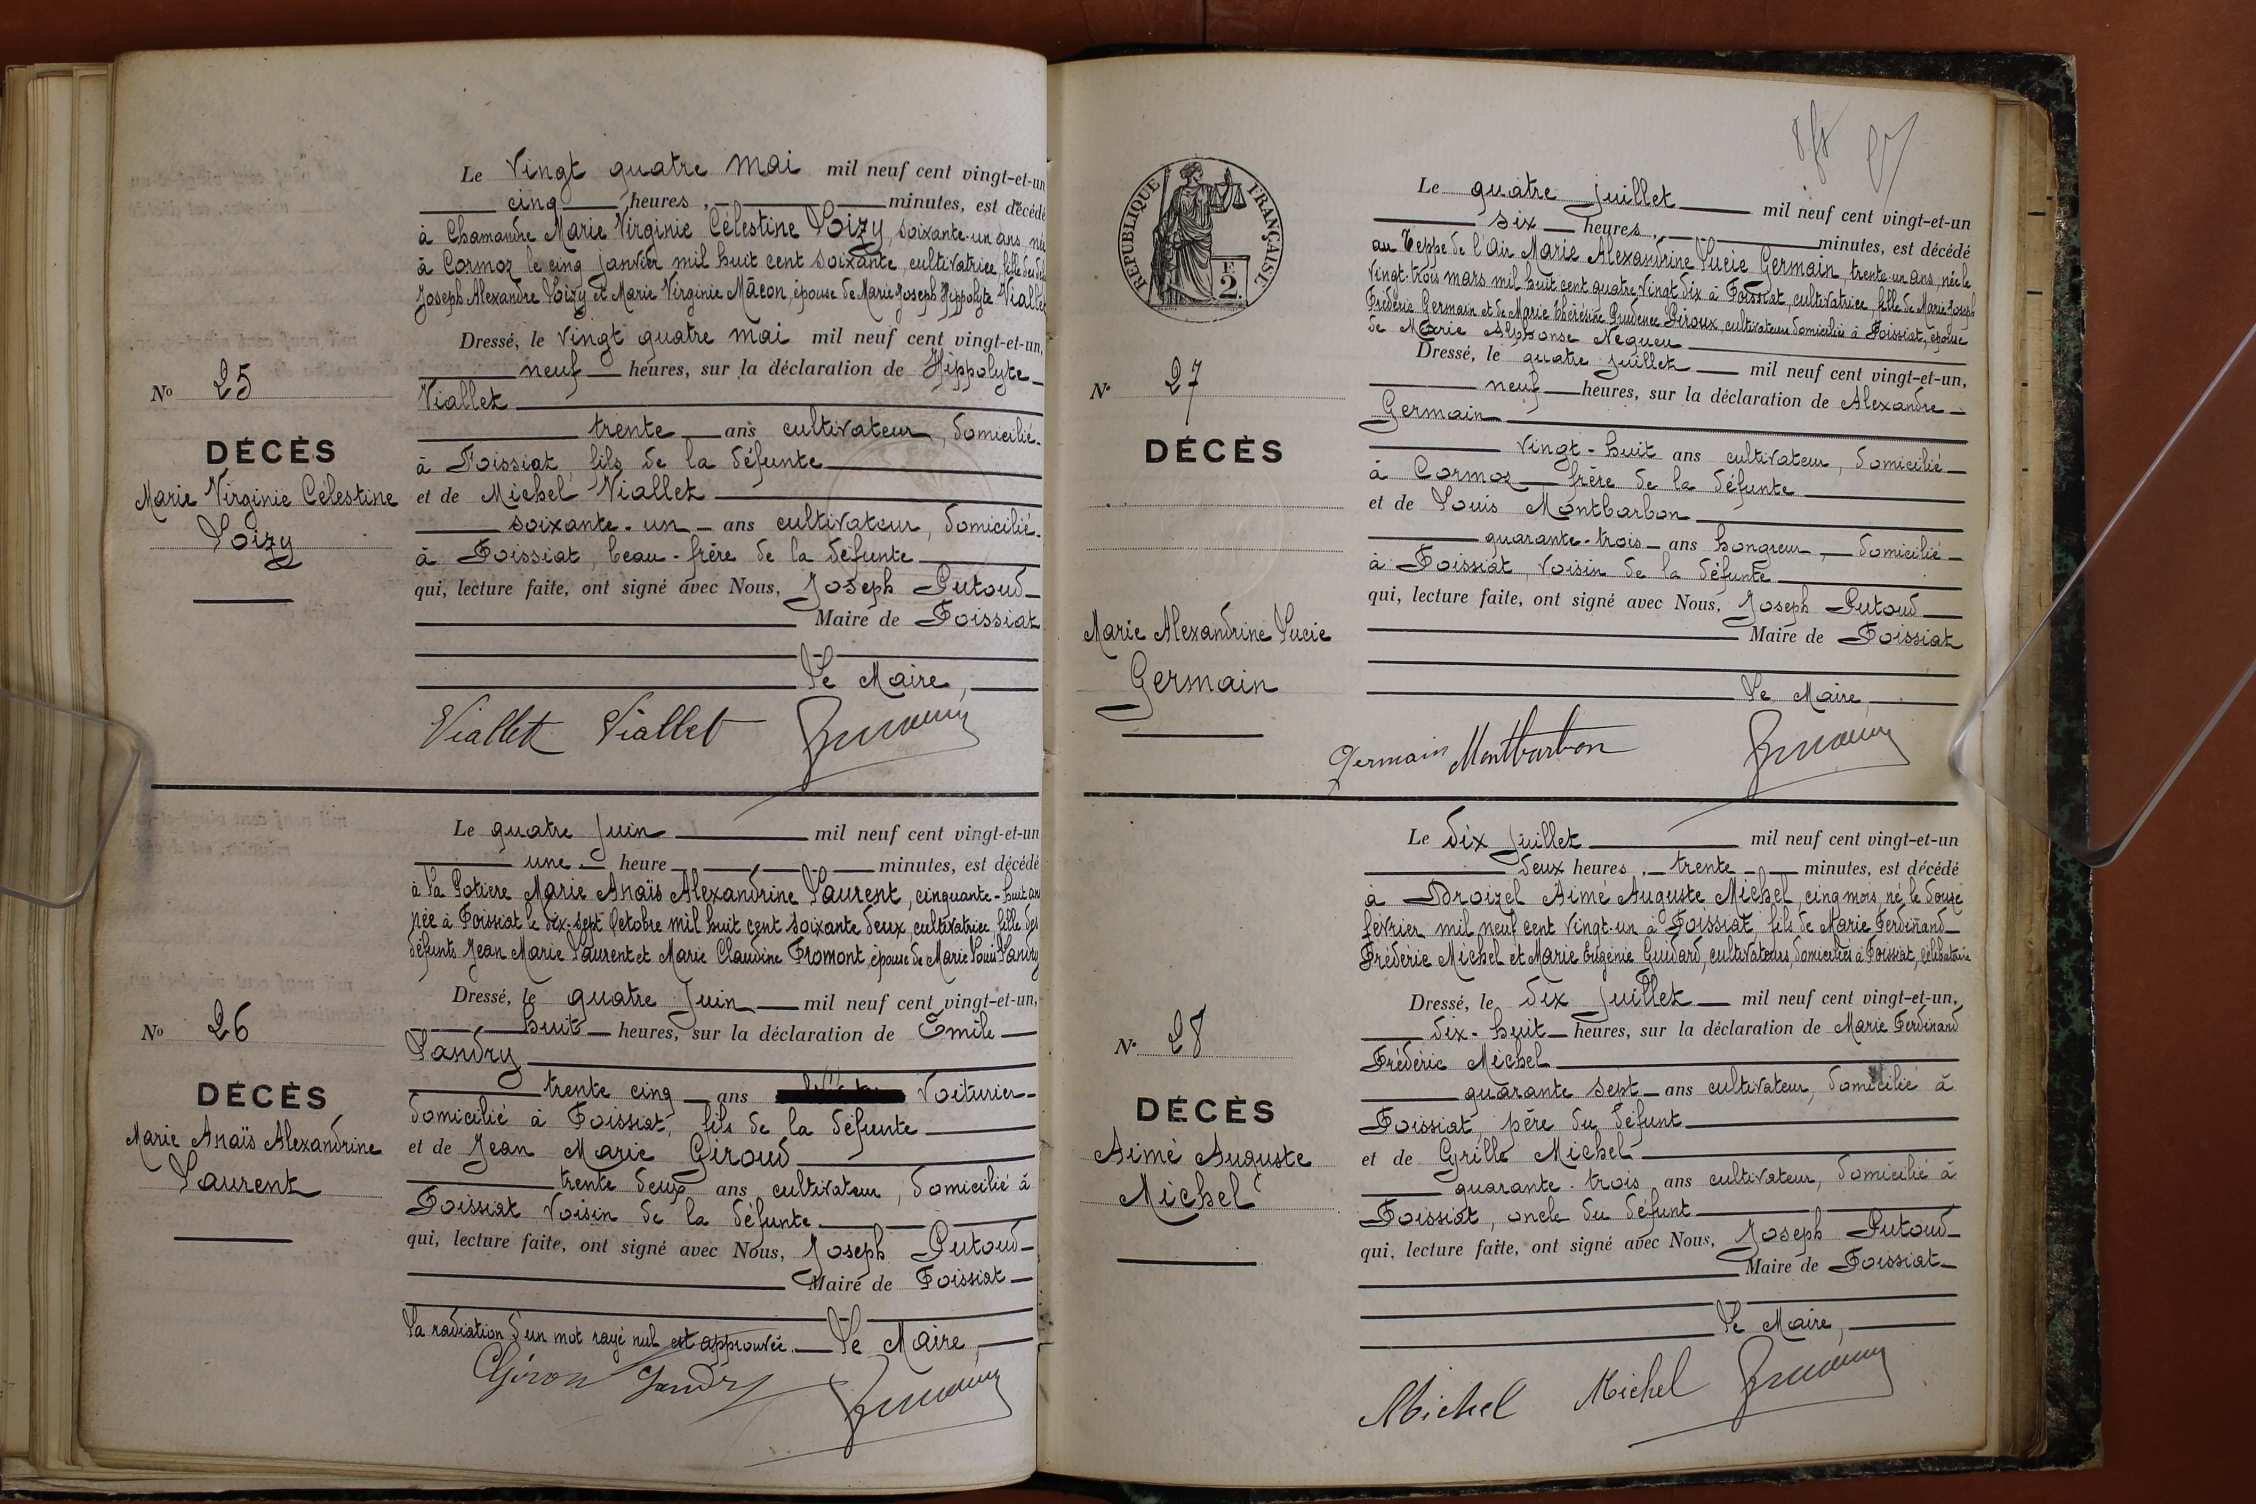 Le Vingt quatre mai mil neuf cent vingt-et-un
cinq heures, minutes, est décédé
à Chamandre Marie Virginie Célestine Loizy, soixante-un ans, née
à Cormoz le cinq Janvier mil huit cent soixante, cultivatrice, fille des
Joseph Alexandre Loizy et Marie Virginie Mâcon, épouse de Marie Joseph Hippolyte Viallet
Dressé, le Vingt quatre mai mil neuf cent vingt-et-un,
neuf heures, sur la déclaration de Hippolyte
Viallet
trente ans cultivateur, domicilié
à Foissiat, fils de la défunte
et de Michel Viallet
soixante-un ans cultivateur, domicilié
à Foissiat, beau-frère de la défunte
qui, lecture faite, ont signé avec Nous, Joseph Putoud
Maire de Foissiat
Le Maire,
Viallet Viallet
No 25
DÉCÈS
Marie Virginie Célestine
Loizy
Le quatre Juin mil neuf cent vingt-et-un
une heure minutes, est décédé
à La Potière Marie Anaïs Alexandrine Laurent, cinquante-huit ans
née à Foissiat le dix-sept Octobre mil huit cent soixante deux, cultivatrice, fille des
défunts Jean Marie Laurent et Marie Claudine Fromont, épouse de Marie Louis Landry
Dressé, le quatre Juin mil neuf cent vingt-et-un,
huit heures, sur la déclaration de Emile
Landry
trente cinq ans Voiturier
domicilié à Foissiat, fils de la défunte
et de Jean Marie Giroud
trente deux ans cultivateur, domicilié à
Foissiat voisin de la défunte
qui, lecture faite, ont signé avec Nous, Joseph Putoud
Maire de Foissiat
La radiation d'un mot rayé nul est approuvée. Le Maire,
Landry
No 26
DÉCÈS
Marie Anaïs Alexandrine
Laurent
RÉPUBLIQUE FRANÇAISE
F.
2
Le quatre Juillet mil neuf cent vingt-et-un
six heures, minutes, est décédé
au Teppe de l'Air Marie Alexandrine Lucie Germain, trente-un ans, née le
vingt-trois mars mil huit cent quatre vingt dix à Foissiat, cultivatrice, fille de Marie Joseph
Frédéric Germain et de Marie Thérésine Prudence Piroux, cultivateurs domiciliés à Foissiat, épouse
de Marie Alphonse Négueu
Dressé, le quatre Juillet mil neuf cent vingt-et-un,
neuf heures, sur la déclaration de Alexandre
Germain
vingt-huit ans cultivateur, domicilié
à Cormoz frère de la défunte
et de Louis Montbarbon
quarante-trois ans hongreur, domicilié
à Foissiat, voisin de la défunte
qui, lecture faite, ont signé avec Nous, Joseph Putoud
Maire de Foissiat
Le Maire,
Germain Montbarbon
No 27
DÉCÈS
Marie Alexandrine Lucie
Germain
Le dix Juillet mil neuf cent vingt-et-un
deux heures, trente minutes, est décédé
à Broizel Aimé Auguste Michel, cinq mois, né le douze
février mil neuf cent vingt-un à Foissiat, fils de Marie Ferdinand
Frédéric Michel et Marie Eugénie Guidard, cultivateurs, domiciliés à Foissiat, célibataire
Dressé, le dix Juillet mil neuf cent vingt-et-un,
dix-huit heures, sur la déclaration de Marie Ferdinand
Frédéric Michel
quarante sept ans cultivateur, domicilié à
Foissiat, père du défunt
et de Cyrille Michel
quarante-trois ans cultivateur, domicilié à
Foissiat, oncle du défunt
qui, lecture faite, ont signé avec Nous, Joseph Putoud
Maire de Foissiat
Le Maire,
Michel Michel
No 28
DÉCÈS
Aimé Auguste
Michel